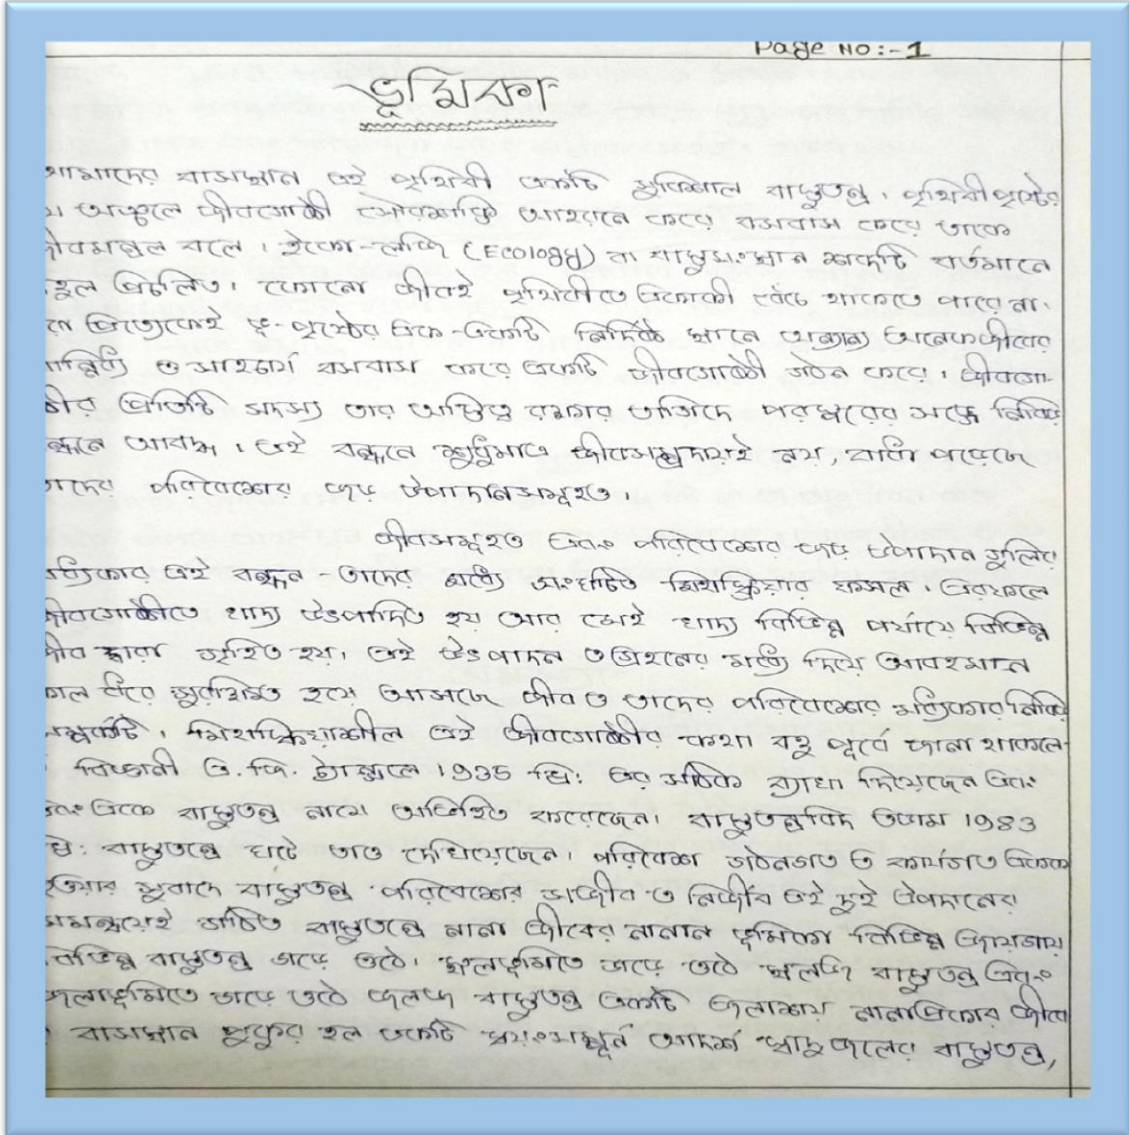 Page No:-1
ভূমিকা
আমাদের বাসস্থান এই পৃথিবী একটি সুবিশাল বাস্তুতন্ত্র। পৃথিবীপৃষ্ঠের
য অঞ্চলে জীবগোষ্ঠী সৌরশক্তি আহরণ করে বসবাস করে তাকে
জীবমণ্ডল বলে। ইকো-লজি (Ecology) বা বাস্তুসংস্থান শব্দটি বর্তমানে
হুল প্রচলিত। কোনো জীবই পৃথিবীতে একাকী বেঁচে থাকতে পারে না।
প্রত্যেকেই ভূ-পৃষ্ঠের এক-একটি নির্দিষ্ট স্থানে অন্যান্য অনেক জীবের
সান্নিধ্যে ও সাহচর্য বসবাস করে একটি জীবগোষ্ঠী গঠন করে। জীবগো-
ষ্ঠীর প্রতিটি সদস্য তার অস্তিত্ব রক্ষার তাগিদে পরস্পরের সঙ্গে নিবিড়
বন্ধনে আবদ্ধ। এই বন্ধনে শুধুমাত্র জীবসম্প্রদায়ই নয়, বাঁধা পড়েছে
তাদের পরিবেশের জড় উপাদানসমূহও।
জীবসমূহও এবং পরিবেশের জড় উপাদান গুলির
মধ্যেকার এই বন্ধন - তাদের মধ্যে সংঘটিত মিথস্ক্রিয়ার ফসল। এরফলে
জীবগোষ্ঠীতে খাদ্য উৎপাদিত হয় আর সেই খাদ্য বিভিন্ন পর্যায়ে বিভিন্ন
জীব দ্বারা গৃহিত হয়। এই উৎপাদন ও গ্রহনের মধ্যে দিয়ে আবহমান
কাল ধরে সুরক্ষিত হয়ে আসছে জীব ও তাদের পরিবেশের মধ্যেকার নিবিড়
সম্পর্কটি। মিথস্ক্রিয়াশীল এই জীবগোষ্ঠীর কথা বহু পূর্বে জানা থাকলে
বিজ্ঞানী এ. জি. ট্যান্সলে 1935 খ্রি: এর সঠিক ব্যাখা দিয়েছেন এবং
এবং একে বাস্তুতন্ত্র নামে অভিহিত করেছেন। বাস্তুতন্ত্রবিদ ওডাম 1983
খ্রি: বাস্তুতন্ত্রে ঘটে তাও দেখিয়েছেন। পরিবেশ গঠনগত ও কার্যগত একক
হওয়ার সুবাদে বাস্তুতন্ত্র পরিবেশের সজীব ও নির্জীব এই দুই উপাদানের
সমন্বয়েই গঠিত বাস্তুতন্ত্রে নানা জীবের নানান ভূমিকা বিভিন্ন জায়গায়
বিভিন্ন বাস্তুতন্ত্র গড়ে ওঠে। স্থলভূমিতে গড়ে ওঠে স্থলজ বাস্তুতন্ত্র এবং
জলাভূমিতে গড়ে ওঠে জলজ বাস্তুতন্ত্র একটি জলাশয় নানাপ্রকার জীবে
বাসস্থান পুকুর হল একটি স্বয়ংসম্পূর্ন আদর্শ স্বাদু জলের বাস্তুতন্ত্র,